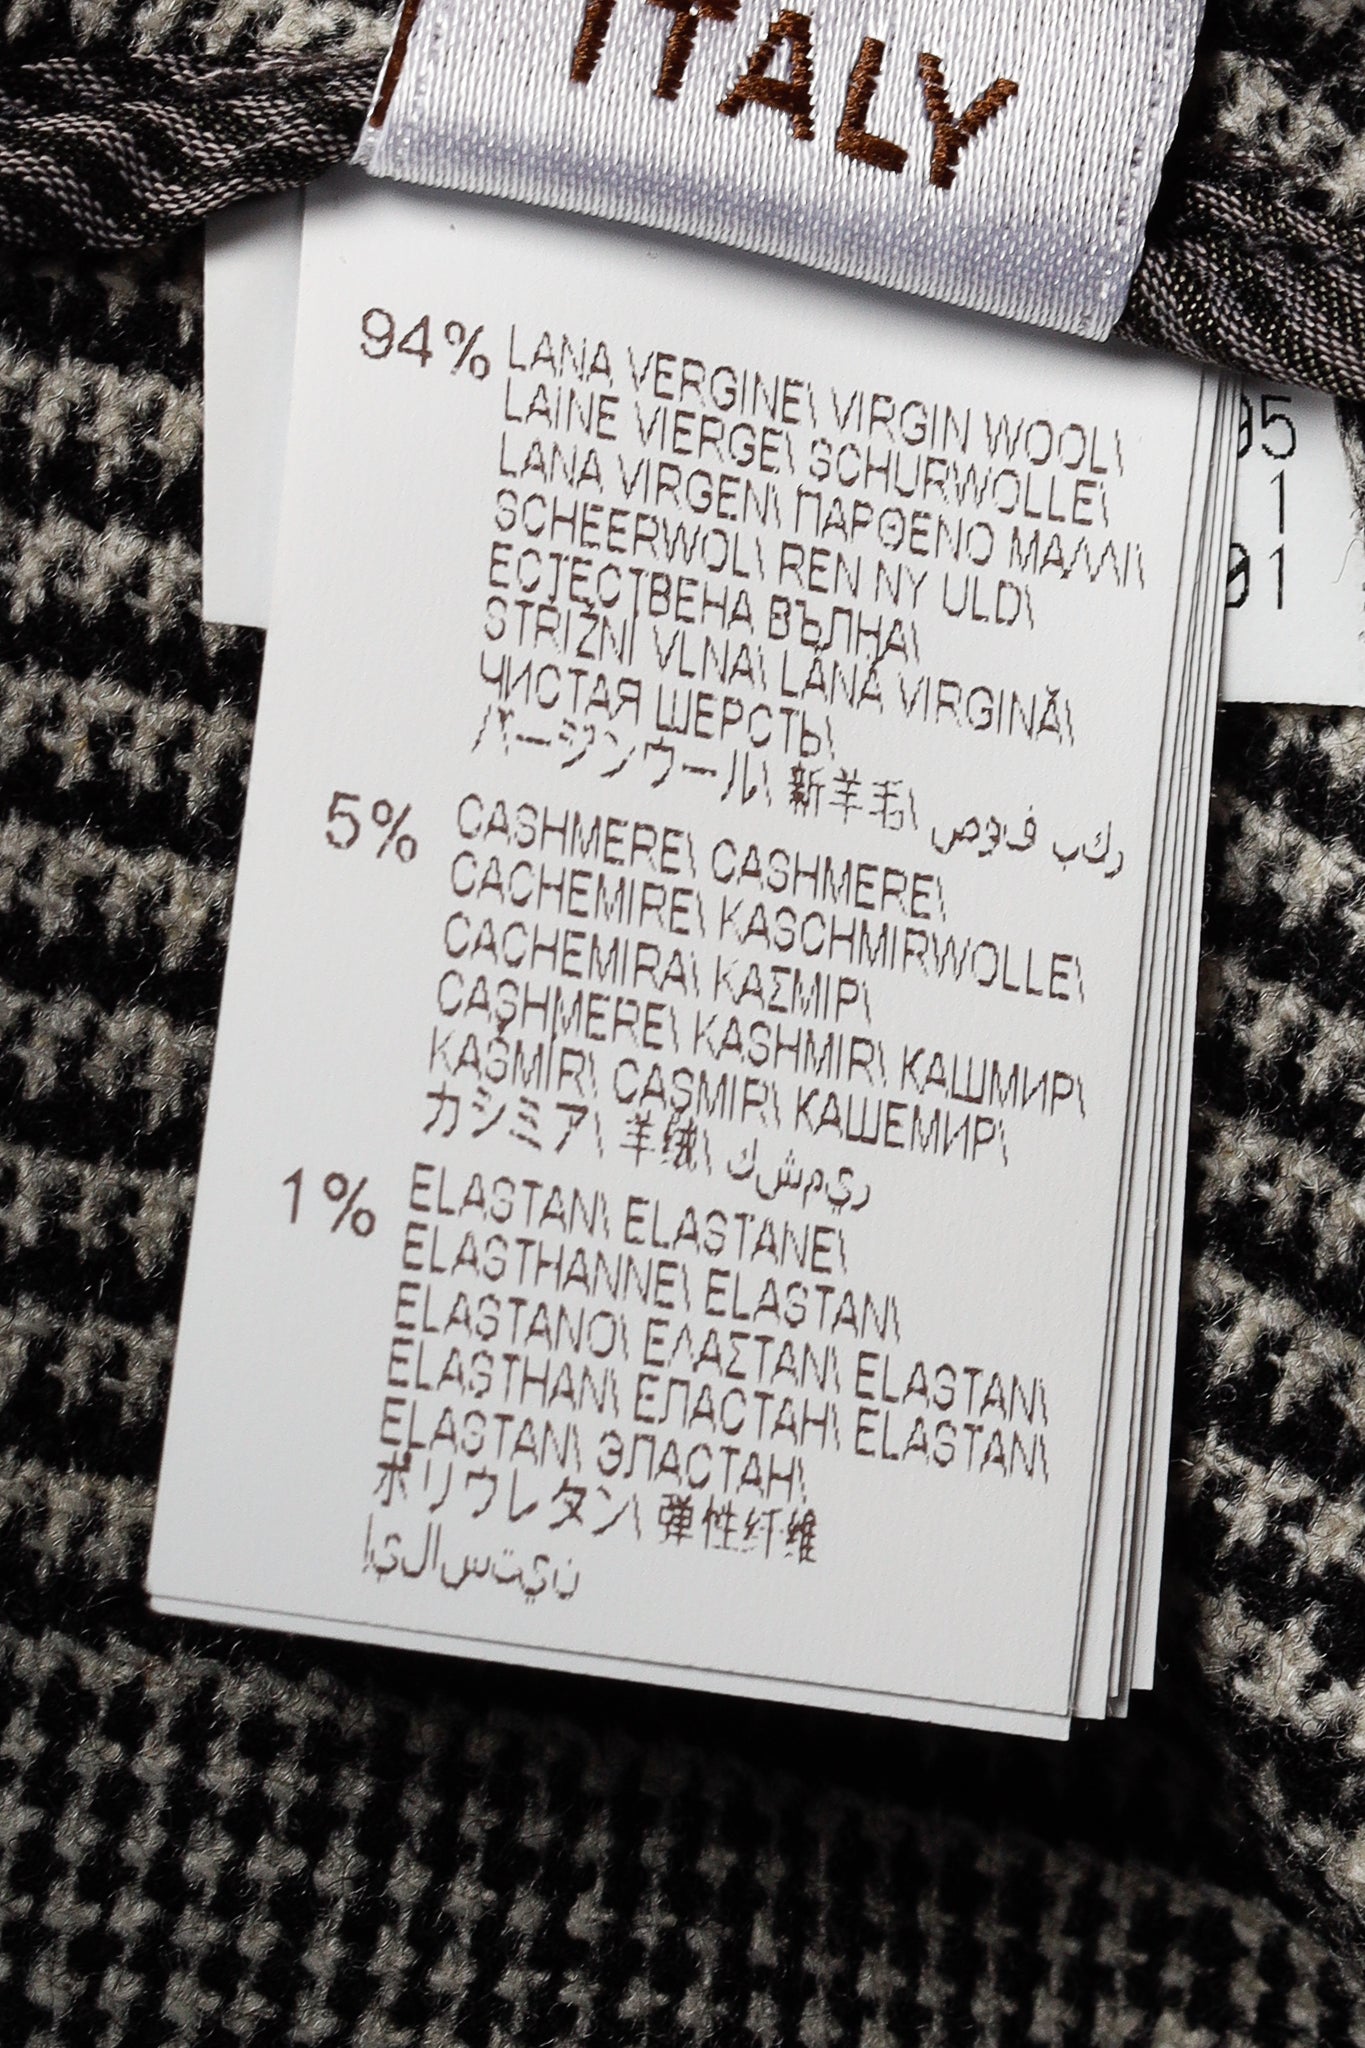 ITALY
94% LANA VERGINE\ VIRGIN WOOL\
LAINE VIERGE\ SCHURWOLLE\
LANA VIRGEN\ ΠΑΡΘΕΝΟ ΜΑΛΛΙ\
SCHEERWOL\ REN NY ULD\
ЕСТЕСТВЕНА ВЪЛНА\
STŘIŽNÍ VLNA\ LÂNĂ VIRGINĂ\
ЧИСТАЯ ШЕРСТЬ\
バージンウール\ 新羊毛\ صوف بكر
5% CASHMERE\ CASHMERE\
CACHEMIRE\ KASCHMIRWOLLE\
CACHEMIRA\ ΚΑΣΜΙΡ\
CASHMERE\ KASHMIR\ КАШМИР\
KAŠMÍR\ CAŞMIR\ КАШЕМИР\
カシミア\ 羊绒\ كشمير
1% ELASTAN\ ELASTANE\
ELASTHANNE\ ELASTAN\
ELASTANO\ ΕΛΑΣΤΑΝ\ ELASTAN\
ELASTHAN\ ЕЛАСТАН\ ELASTAN\
ELASTAN\ ЭЛАСТАН\
ポリウレタン\ 弹性纤维
إيلاستين
95
1
01